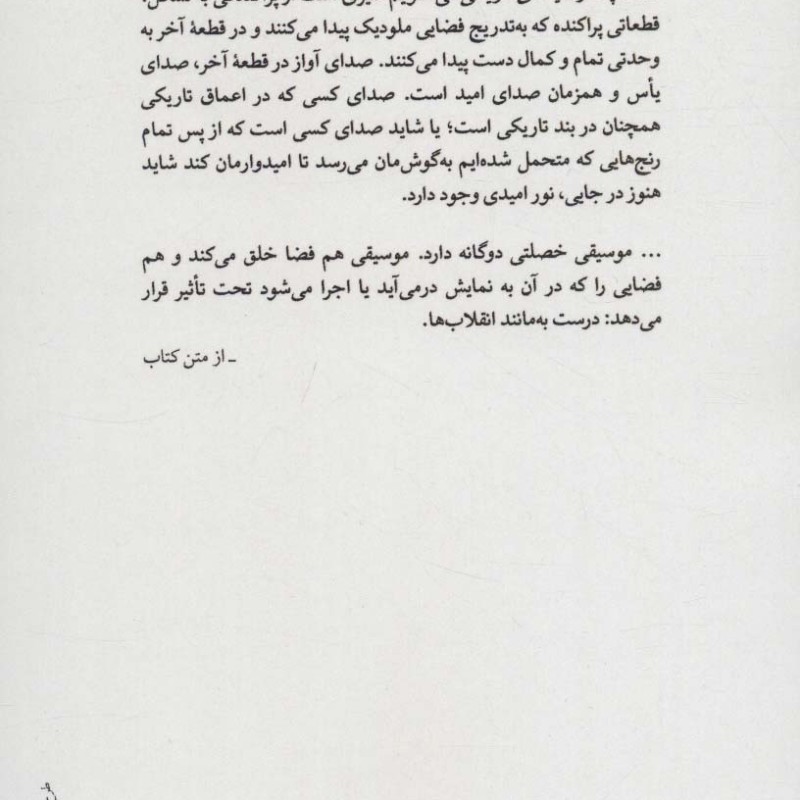 قطعاتی پراکنده که به‌تدریج فضایی ملودیک پیدا می‌کنند و در قطعهٔ آخر به
وحدتی تمام و کمال دست پیدا می‌کنند. صدای آواز در قطعهٔ آخر، صدای
یأس و همزمان صدای امید است. صدای کسی که در اعماق تاریکی
همچنان در بند تاریکی است؛ یا شاید صدای کسی است که از پس تمام
رنج‌هایی که متحمل شده‌ایم به‌گوش‌مان می‌رسد تا امیدوارمان کند شاید
هنوز در جایی، نور امیدی وجود دارد.
... موسیقی خصلتی دوگانه دارد. موسیقی هم فضا خلق می‌کند و هم
فضایی را که در آن به نمایش درمی‌آید یا اجرا می‌شود تحت تأثیر قرار
می‌دهد: درست به‌مانند انقلاب‌ها.
ـ از متن کتاب